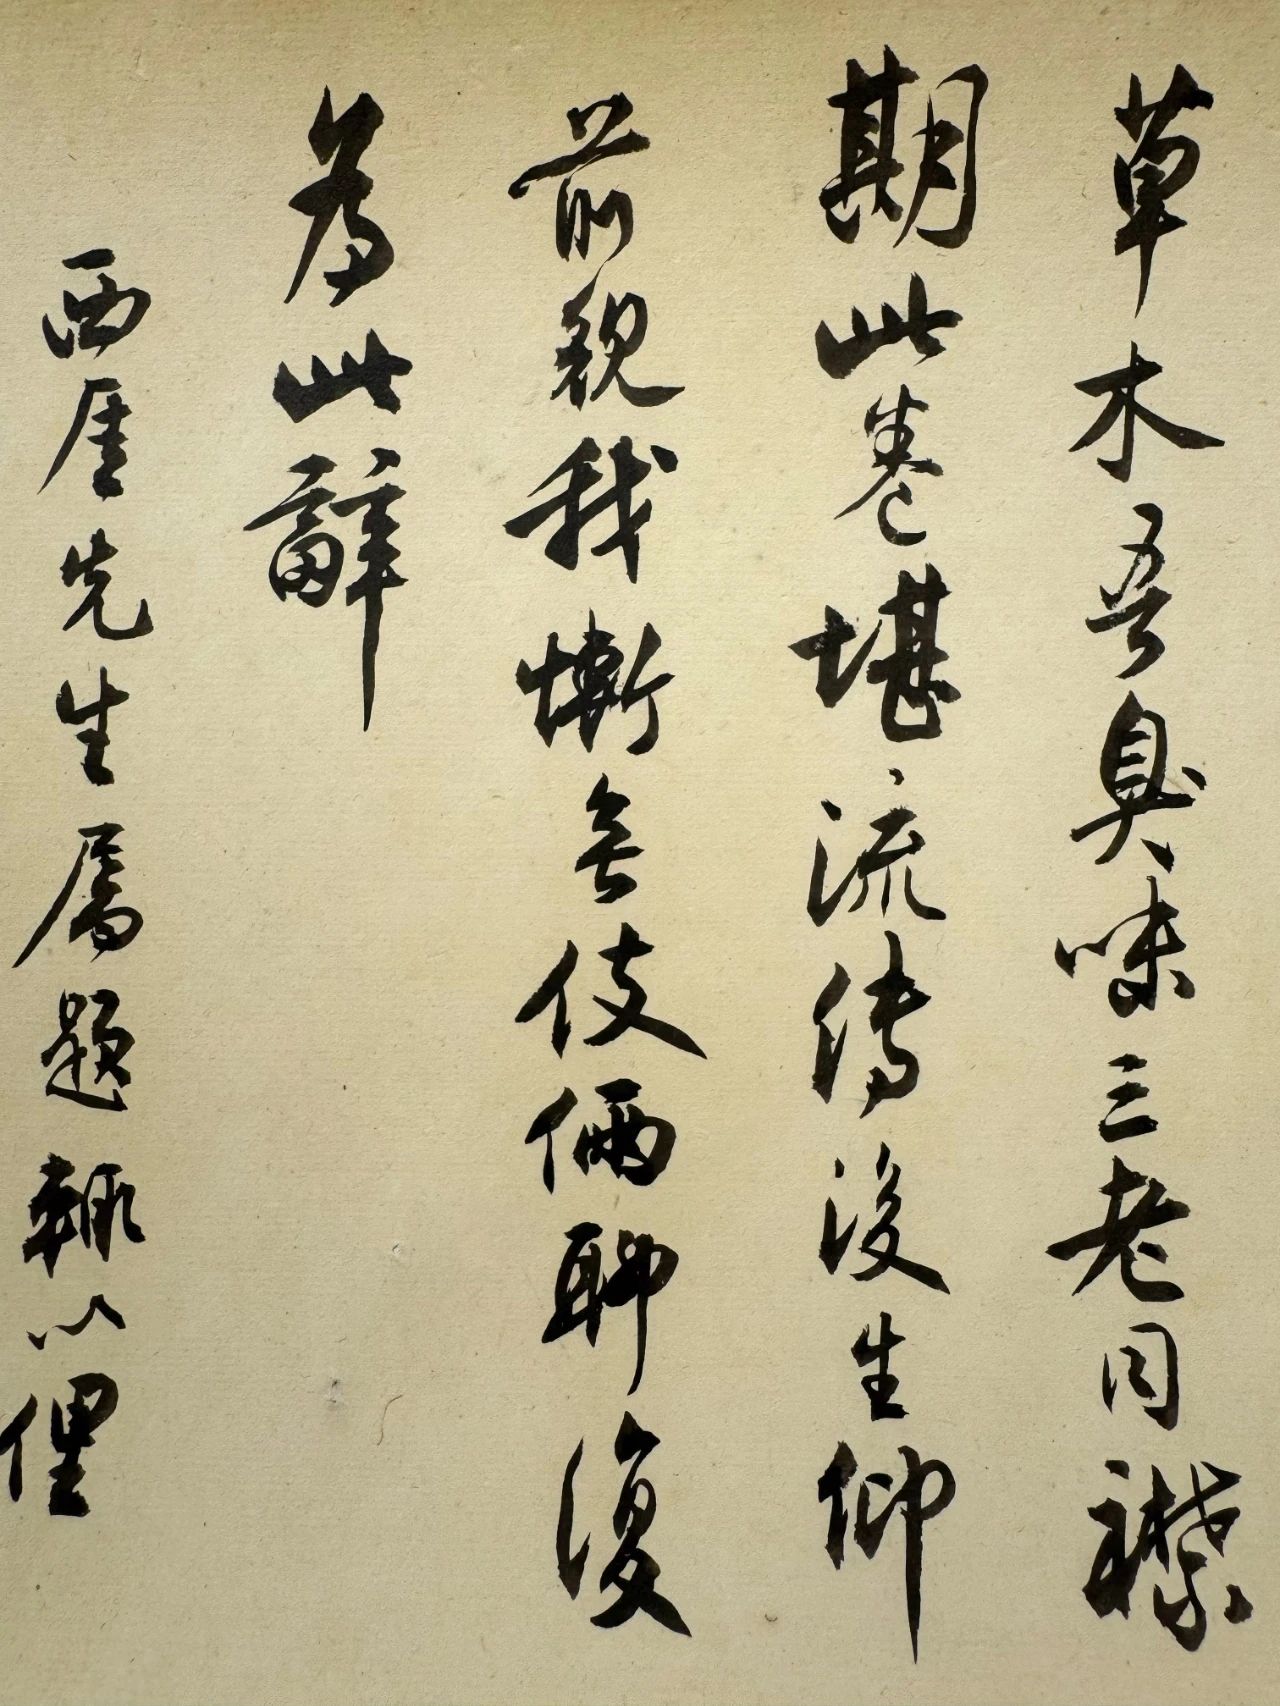 草木吾臭味三老同襟
期此卷堪流傳後生仰
前覯我慚無伎倆聊復
為此辭
西厓先生屬題輒以俚